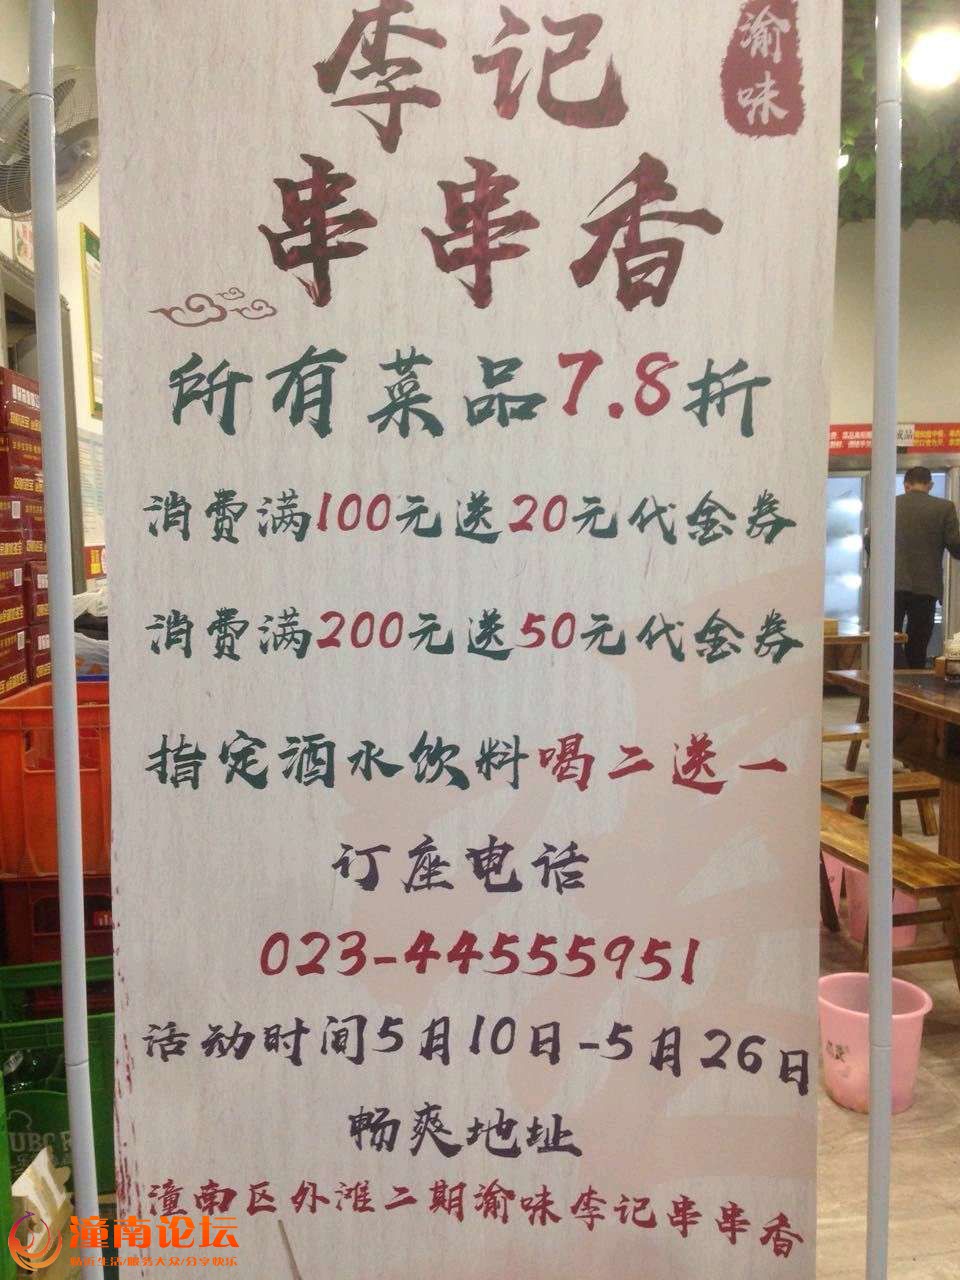 李记
渝味
串串香
所有菜品7.8折
消费满100元送20元代金券
消费满200元送50元代金券
指定酒水饮料喝二送一
订座电话
023-44555951
活动时间5月10日-5月26日
畅爽地址
潼南区外滩二期渝味李记串串香
潼南论坛